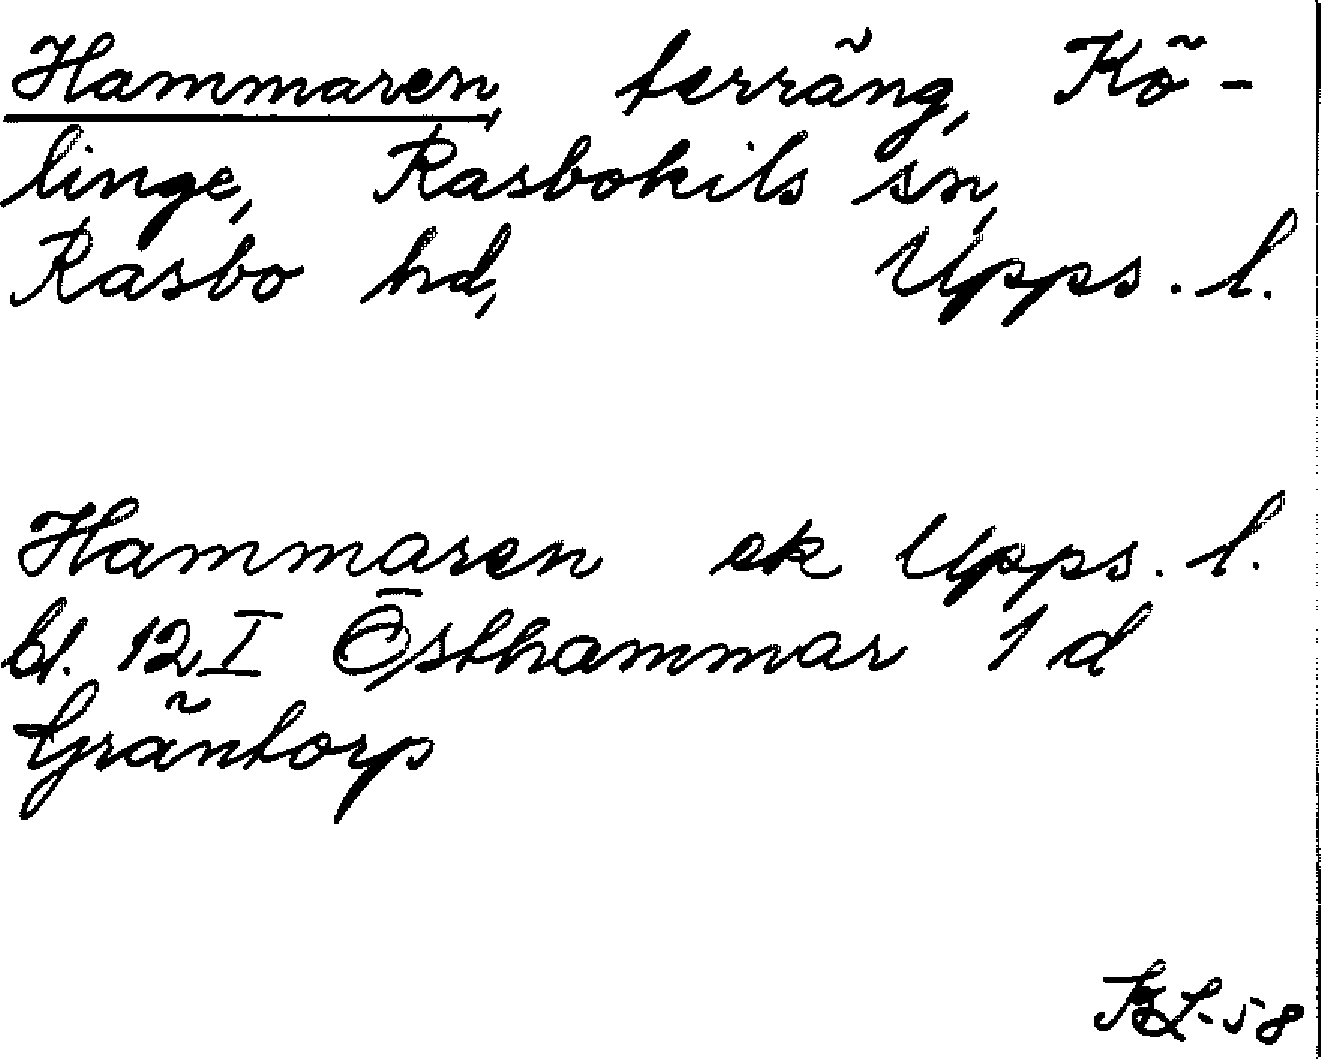 Hammaren, terräng, Kö-
linge, Rasbokils sn,
Rasbo hd, Upps. l.
Hammaren ek Upps. l.
bl. 12 I Östhammar 1 d
Gräntorp
BL-58